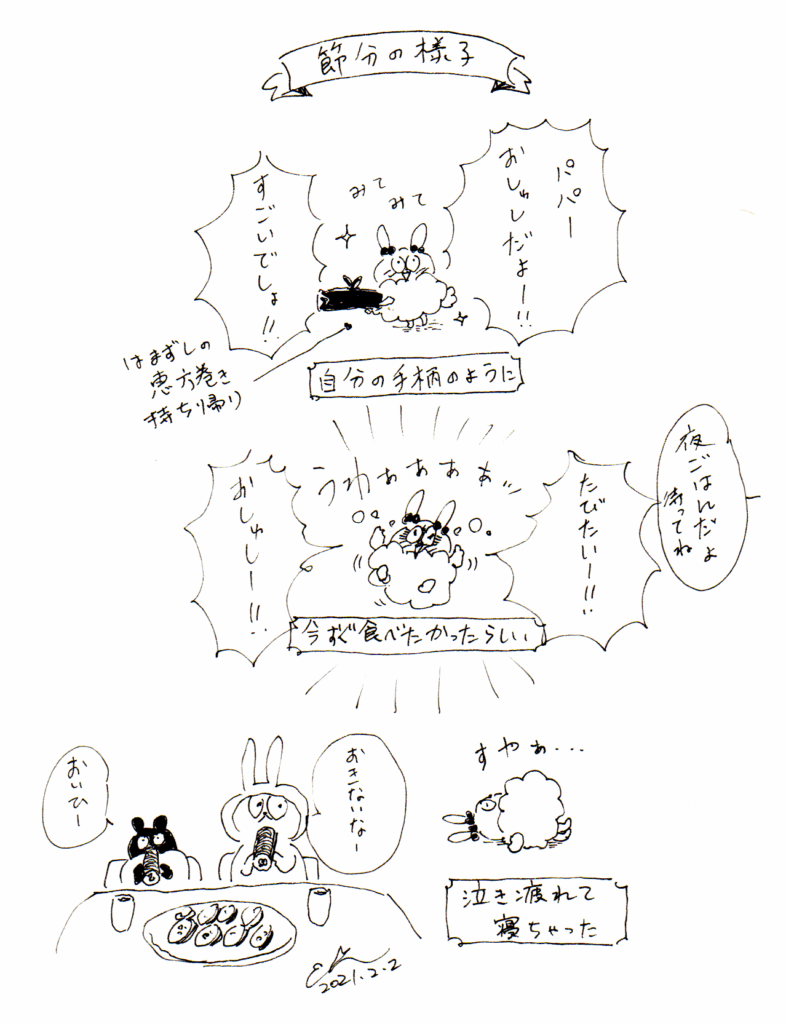 節分の様子
パパー
おしゅしだよー!!
みて
みて
すごいでしょ!!
はまずしの
恵方巻き
持ち帰り
自分の手柄のように
夜ごはんだよ
待ってね
たびたいー!!
うわぁぁぁぁ
おしゅしー!!
今すぐ食べたかったらしい
おきないなー
おいひー
すやぁ...
泣き疲れて
寝ちゃった
2021.2.2